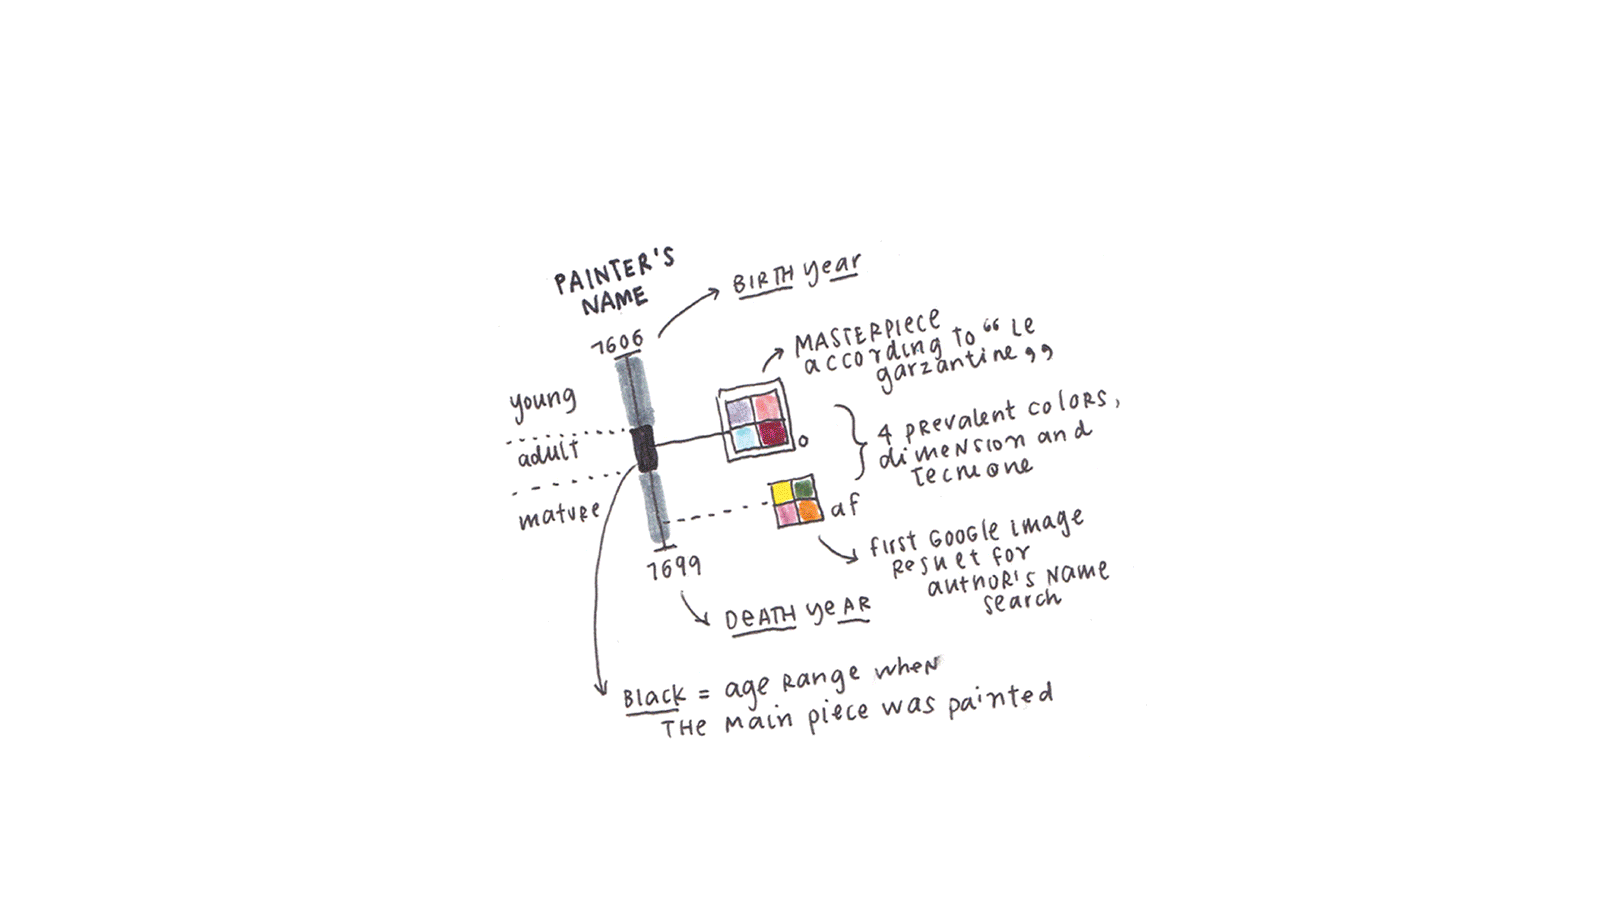 PAINTER'S
NAME
1606
BIRTH year
young
adult
mature
MASTERPIECE
according to “Le
garzantine„
4 prevalent colors,
dimension and
Tecnione
o
af
first GOOGLE image
Result for
author's Name
search
1699
DEATH year
Black = age range when
THE main piece was painted